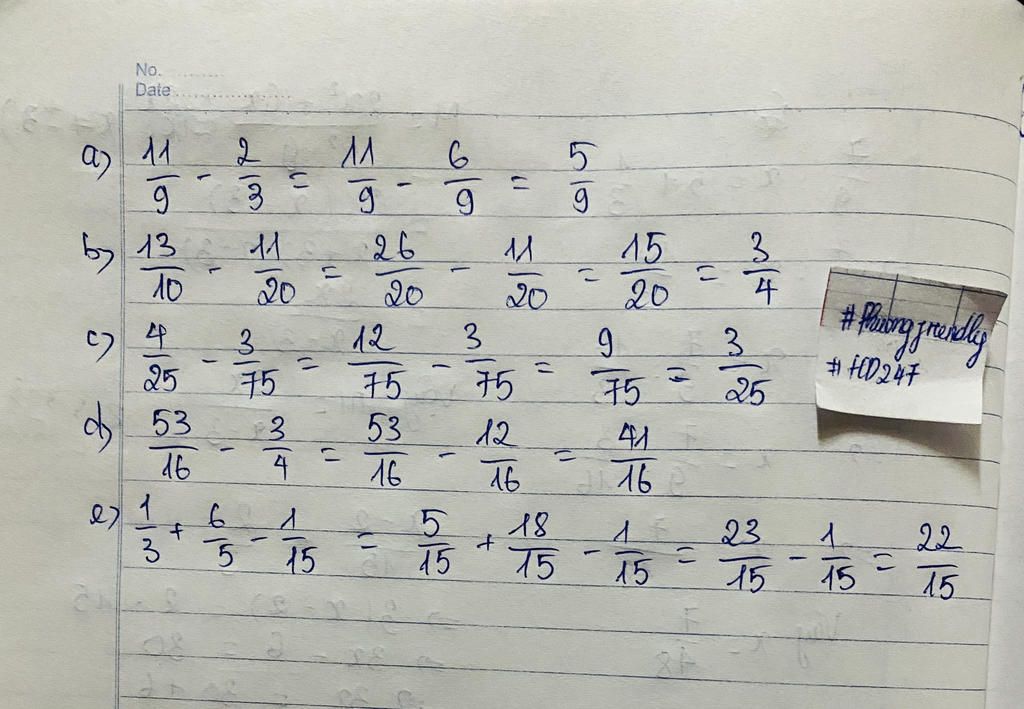 No. ............
Date ........................
a) 11/9 - 2/3 = 11/9 - 6/9 = 5/9
b) 13/10 - 11/20 = 26/20 - 11/20 = 15/20 = 3/4
c) 4/25 - 3/75 = 12/75 - 3/75 = 9/75 = 3/25
d) 53/16 - 3/4 = 53/16 - 12/16 = 41/16
e) 1/3 + 6/5 - 1/15 = 5/15 + 18/15 - 1/15 = 23/15 - 1/15 = 22/15
#Phuongfriendly
#HD247